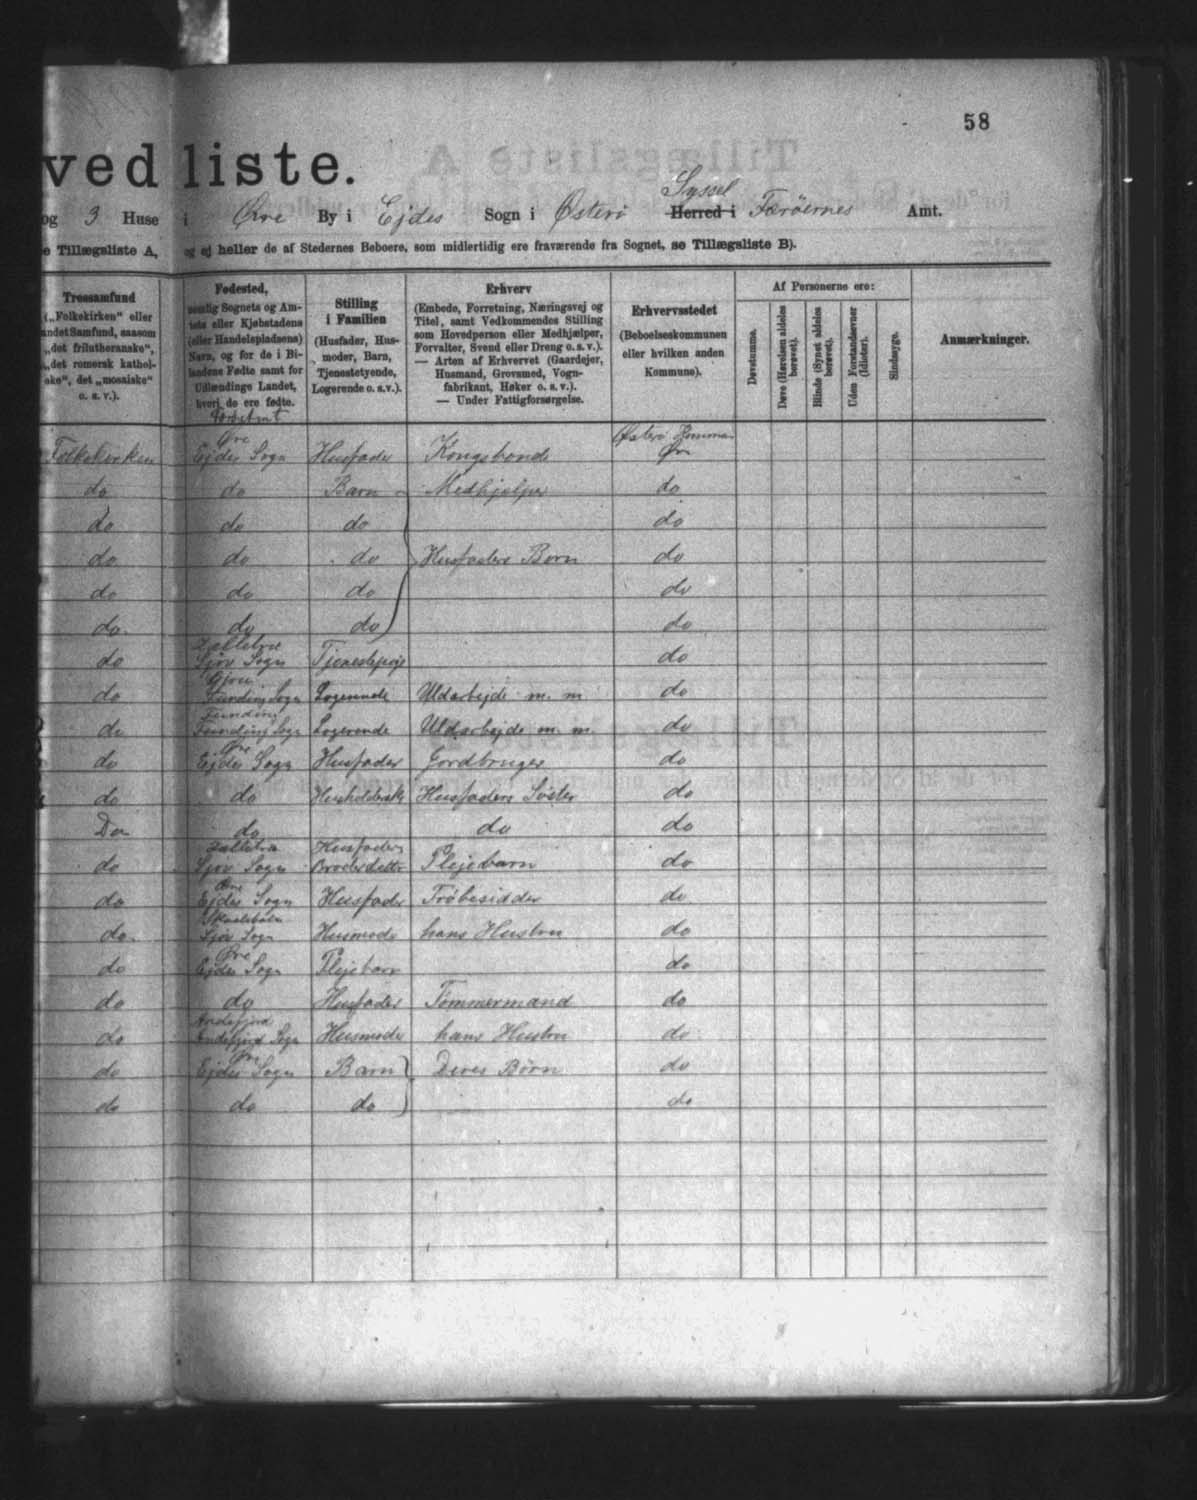 58
ved liste.
og 3 Huse i Øre By i Ejdes Sogn i Østerø Syssel Herred i Færøernes Amt.
e Tillægsliste A, og ej heller de af Stedernes Beboere, som midlertidig ere fraværende fra Sognet, se Tillægsliste B).
Trossamfund
(„Folkekirken“ eller
andet Samfund, saasom
„det frilutheranske“,
„det romersk kathol-
ske“, det „mosaiske“
o. s. v.).
Fødested,
nemlig Sognets og Am-
tets eller Kjøbstadens
(eller Handelspladsens)
Navn, og for de i Bi-
landene Fødte samt for
Udlændinge Landet,
hvori de ere fødte.
Stilling
i Familien
(Husfader, Hus-
moder, Barn,
Tjenestetyende,
Logerende o. s. v.).
Erhverv
(Embede, Forretning, Næringsvej og
Titel, samt Vedkommendes Stilling
som Hovedperson eller Medhjælper,
Forvalter, Svend eller Dreng o. s. v.).
— Arten af Erhvervet (Gaardejer,
Husmand, Grovsmed, Vogn-
fabrikant, Høker o. s. v.).
— Under Fattigforsørgelse.
Erhvervsstedet
(Beboelseskommunen
eller hvilken anden
Kommune).
Af Personerne ere:
Døvstumme.
Døve (Hørelsen aldeles
berøvet).
Blinde (Synet aldeles
berøvet).
Uden Forstandsevner
(Idioter).
Sindssyge.
Anmærkninger.
Folkekirken Øre Ejdes Sogn Husfader Kongsbonde Østerø Øre
do do Barn Medhjelper do
do do do do
do do do Husfaders Børn do
do do do do
do do do do
do Sjov Sogn do
do Funding Sogn Logerende Uldarbejde m. m. do
do Funding Funding Sogn Logerende Uldarbejde m. m. do
do Øre Ejdes Sogn Husfader Jordbruger do
do do Husholderske Husfaders Søster do
Do do do do
do Sjov Sogn Husfaders Broderdatter Plejebarn do
do Øre Ejdes Sogn Husfader do
do Sjov Sogn Husmoder hans Hustru do
do Øre Ejdes Sogn Plejebarn do
do do Husfader Tømmermand do
do Andefjord Andefjord Sogn Husmoder hans Hustru do
do Øre Ejdes Sogn Barn Deres Børn do
do do do do